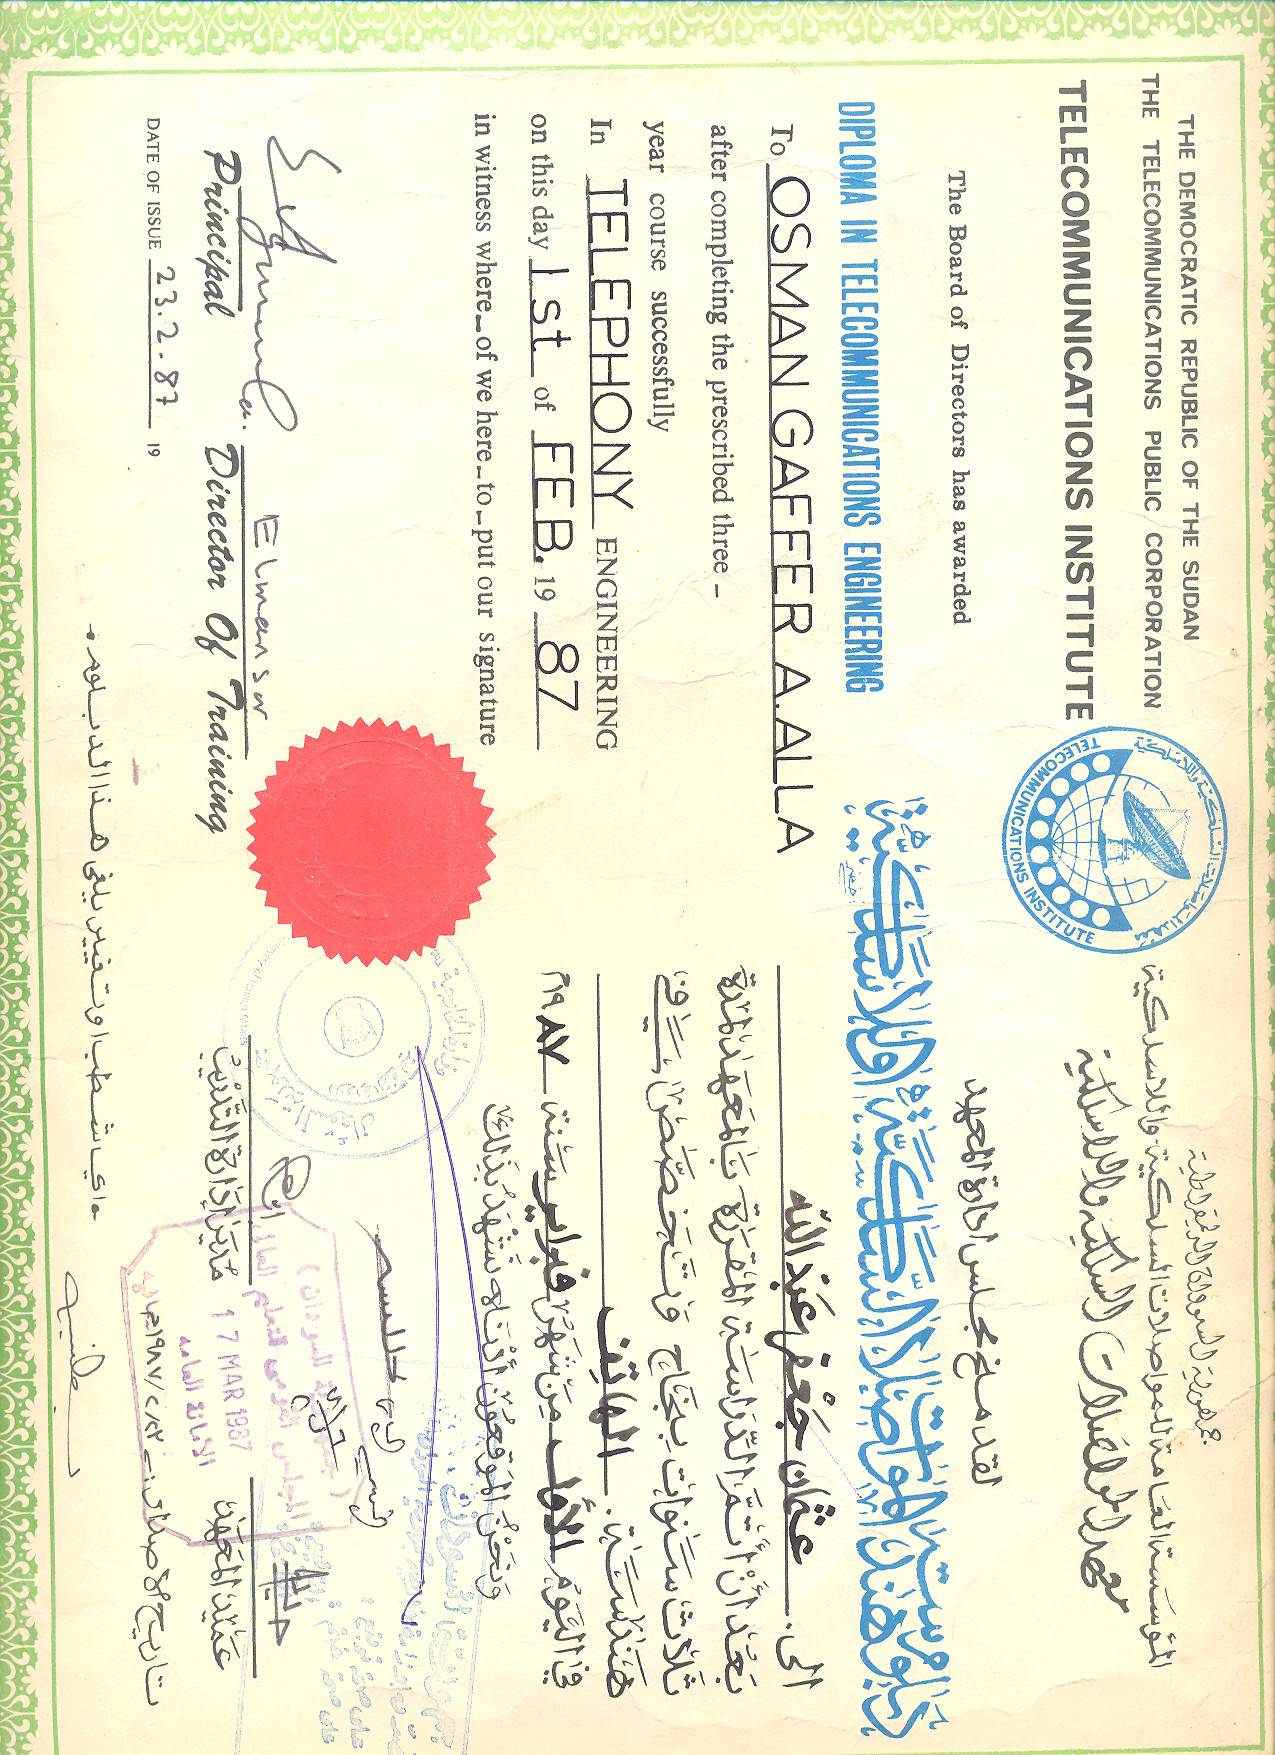 THE DEMOCRATIC REPUBLIC OF THE SUDAN
THE TELECOMMUNICATIONS PUBLIC CORPORATION
TELECOMMUNICATIONS INSTITUTE
The Board of Directors has awarded
DIPLOMA IN TELECOMMUNICATIONS ENGINEERING
To OSMAN GAFFER A.ALLA
after completing the prescribed three -
year course successfully
In TELEPHONY ENGINEERING
on this day 1st of FEB. 19 87
in witness where_of we here_to_put our signature
Elmansur
Principal Director Of Training
DATE OF ISSUE 23.2.87 19
معهد المواصلات السلكية واللاسلكية
TELECOMMUNICATIONS INSTITUTE
جمهورية السودان الديمقراطية
المؤسسة العامة للمواصلات السلكية واللاسلكية
معهد المواصلات السلكية واللاسلكية
لقد منح مجلس ادارة المعهد
دبلوم هندسة المواصلات السلكية واللاسلكية
الى. عثمان جعفر عبدالله
بعد أن أتم الدراسة المقررة بالمعهد لمدة
ثلاث سنوات بنجاح وتخصص في
هندسة. الهاتف
في اليوم الأول من شهر فبراير سنة ١٩٨٧م
ونحن الموقعون أدناه نشهد بذلك
عميد المعهد مدير إدارة التدريب
17 MAR 1987
الامانة العامة
تاريخ الاصدار
اي شطب او تغيير يلغى هذا الدبلوم.